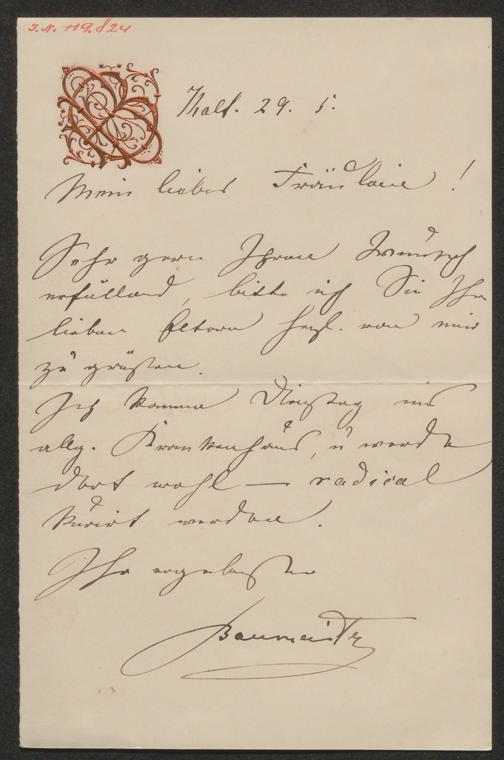 I.N. 119.824
29. 5.
Mein liebes Fräulein!
Sehr gern Ihren Wunsch
erfüllend, bitte ich Sie Ihre
lieben Eltern herzl. von mir
zu grüßen.
Ich komme Dienstag ins
allg. Krankenhaus, u werde
dort wohl — radical
kurirt werden.
Ihr ergebenster
Baumeister